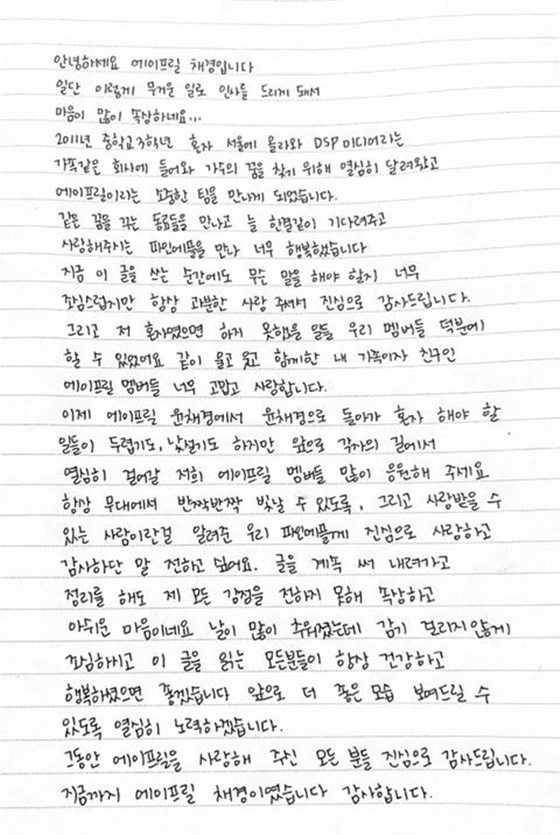 안녕하세요 에이프릴 채경입니다
일단 이렇게 무거운 일로 인사를 드리게 돼서
마음이 많이 속상하네요...
2011년 중학교 3학년 혼자 서울에 올라와 DSP미디어라는
가족같은 회사에 들어와 가수의 꿈을 찾기 위해 열심히 달려왔고
에이프릴이라는 소중한 팀을 만나게 되었습니다.
같은 꿈을 꾸는 동료들을 만나고 늘 한결같이 기다려주고
사랑해주시는 파인에플을 만나 너무 행복했습니다
지금 이 글을 쓰는 순간에도 무슨 말을 해야 할지 너무
조심스럽지만 항상 과분한 사랑 주셔서 진심으로 감사드립니다.
그리고 저 혼자였으면 하지 못했을 일들 우리 멤버들 덕분에
할 수 있었어요 같이 울고 웃고 함께한 내 가족이자 친구인
에이프릴 멤버들 너무 고맙고 사랑합니다.
이제 에이프릴 윤채경에서 윤채경으로 돌아가 혼자 해야 할
일들이 두렵기도, 낯설기도 하지만 앞으로 각자의 길에서
열심히 걸어갈 저희 에이프릴 멤버들 많이 응원해 주세요
항상 무대에서 반짝반짝 빛날 수 있도록, 그리고 사랑받을 수
있는 사람이란걸 알려준 우리 파인에플에게 진심으로 사랑하고
감사하단 말 전하고 싶어요. 글을 계속 써 내려가고
정리를 해도 제 모든 감정을 전하지 못해 속상하고
아쉬운 마음이네요 날이 많이 추워졌는데 감기 걸리지않게
조심하시고 이 글을 읽는 모든분들이 항상 건강하고
행복하셨으면 좋겠습니다 앞으로 더 좋은 모습 보여드릴 수
있도록 열심히 노력하겠습니다.
그동안 에이프릴을 사랑해 주신 모든 분들 진심으로 감사드립니다.
지금까지 에이프릴 채경이였습니다 감사합니다.